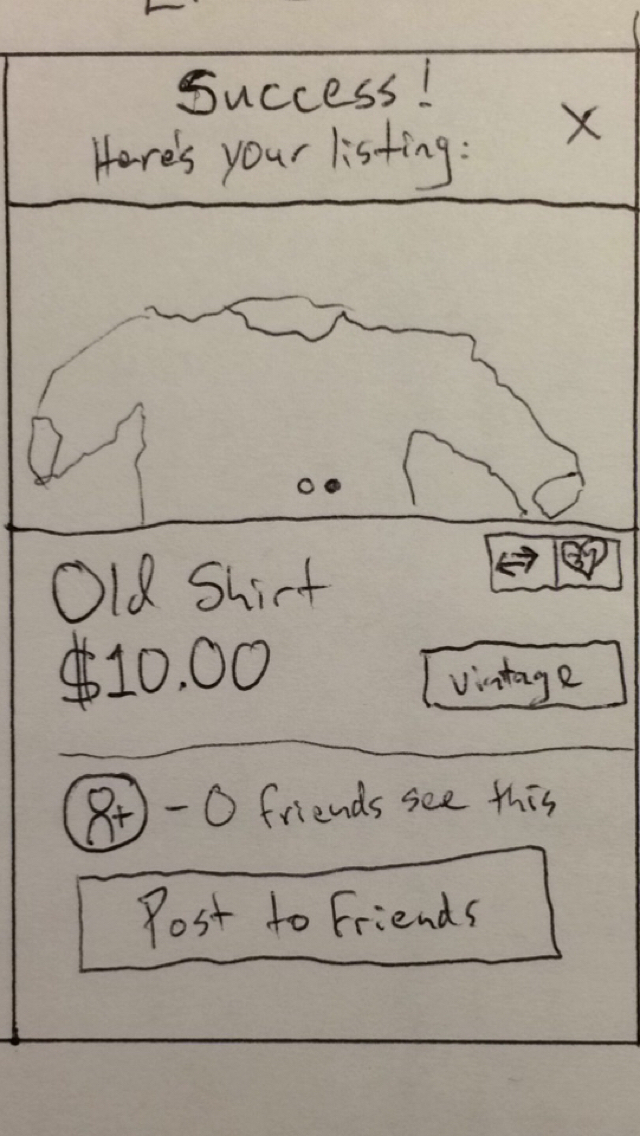 Success!
Here's your listing:
X
Old Shirt
$10.00
vintage
- 0 friends see this
Post to Friends